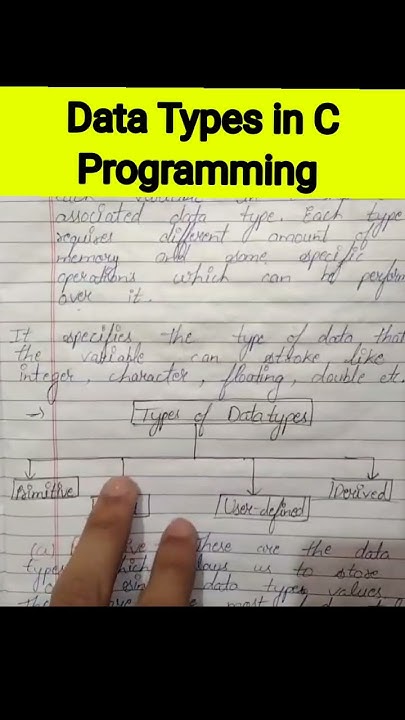 Data Types in C
Programming
associated data type. Each type
requires different amount of
memory and some specific
operations which can be perform
over it.
It specifies the type of data that
the variable can stroke like
integer, character, floating, double etc.
→ Types of Data types
Primitive User-defined Derived
(a) these are the data
types us to store
data types values
the most